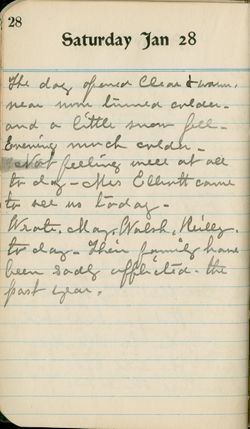 28
Saturday Jan 28
The day opened Clear & warm,
near noon turned colder -
and a little snow fell -
Evening much colder -
Not feeling well at all
to day - Mrs Elliott came
to see us today -
Wrote, May, Walsh, Reilly,
to day - Their family have
been sadly afflicted - the
past year.